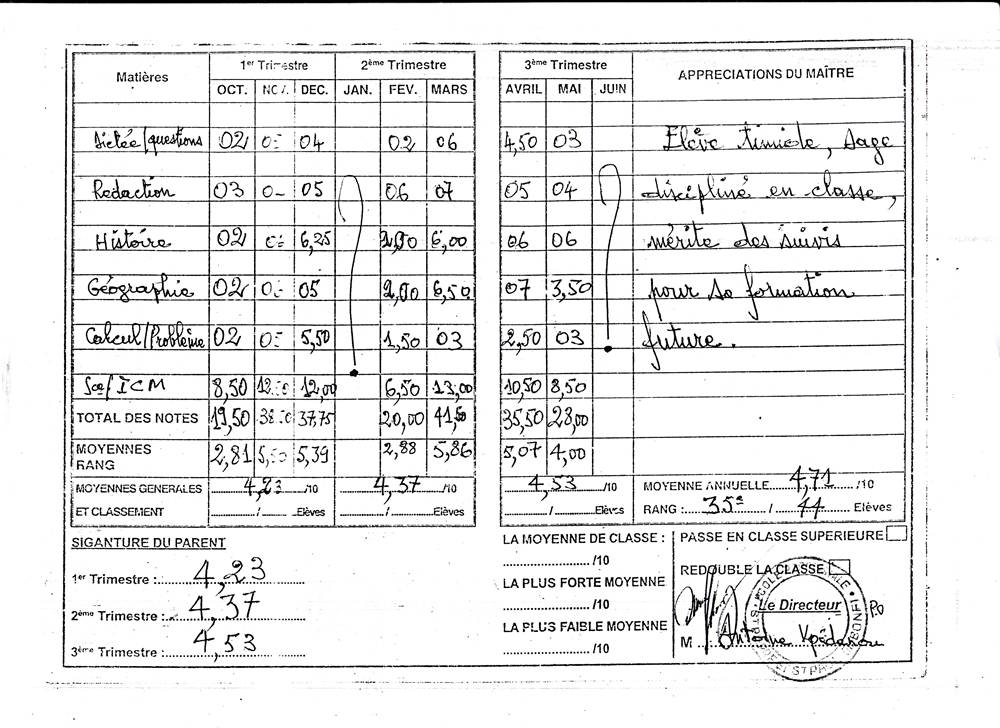 Matières 1er Trimestre 2ème Trimestre 3ème Trimestre APPRECIATIONS DU MAÎTRE
OCT. NOV. DEC. JAN. FEV. MARS AVRIL MAI JUIN
Dictée/questions 02 04 02 06 4,50 03 Elève timide, sage
Rédaction 03 05 06 07 05 04 discipliné en classe,
Histoire 02 6,25 6,00 06 06 mérite des suivis
Géographie 02 05 2,00 6,50 07 3,50 pour sa formation
Calcul/Problème 02 5,50 1,50 03 2,50 03 future.
Sce/ICM 8,50 12,00 6,50 13,00 10,50 8,50
TOTAL DES NOTES 19,50 37,75 20,00 41,50 35,50 28,00
MOYENNES 2,81 5,39 2,88 5,86 5,07 4,00
RANG
MOYENNES GENERALES 4,23 /10 4,37 /10 4,53 /10 MOYENNE ANNUELLE 4,71 /10
ET CLASSEMENT / Elèves / Elèves / Elèves RANG : 35è / 44 Elèves
SIGANTURE DU PARENT
1er Trimestre : 4,23
2ème Trimestre : 4,37
3ème Trimestre : 4,53
LA MOYENNE DE CLASSE :
/10
LA PLUS FORTE MOYENNE
/10
LA PLUS FAIBLE MOYENNE
/10
PASSE EN CLASSE SUPERIEURE
REDOUBLE LA CLASSE
Le Directeur
PO
M Antoine